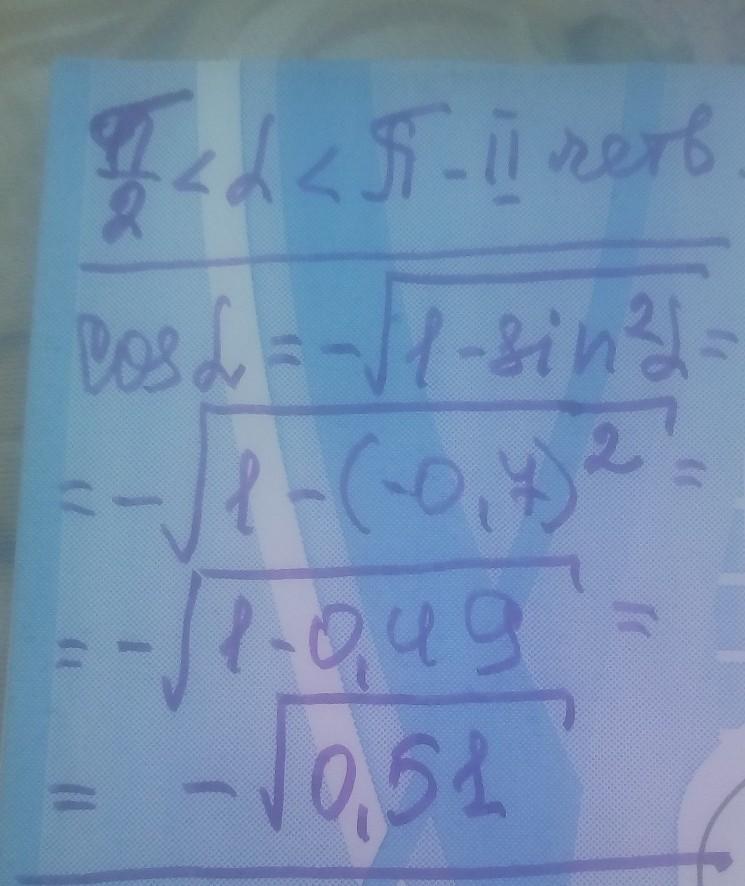 π/2 < α < π - II четв.
cos α = -√(1 - sin²α) =
= -√(1 - (-0,7)²) =
= -√(1 - 0,49) =
= -√0,51